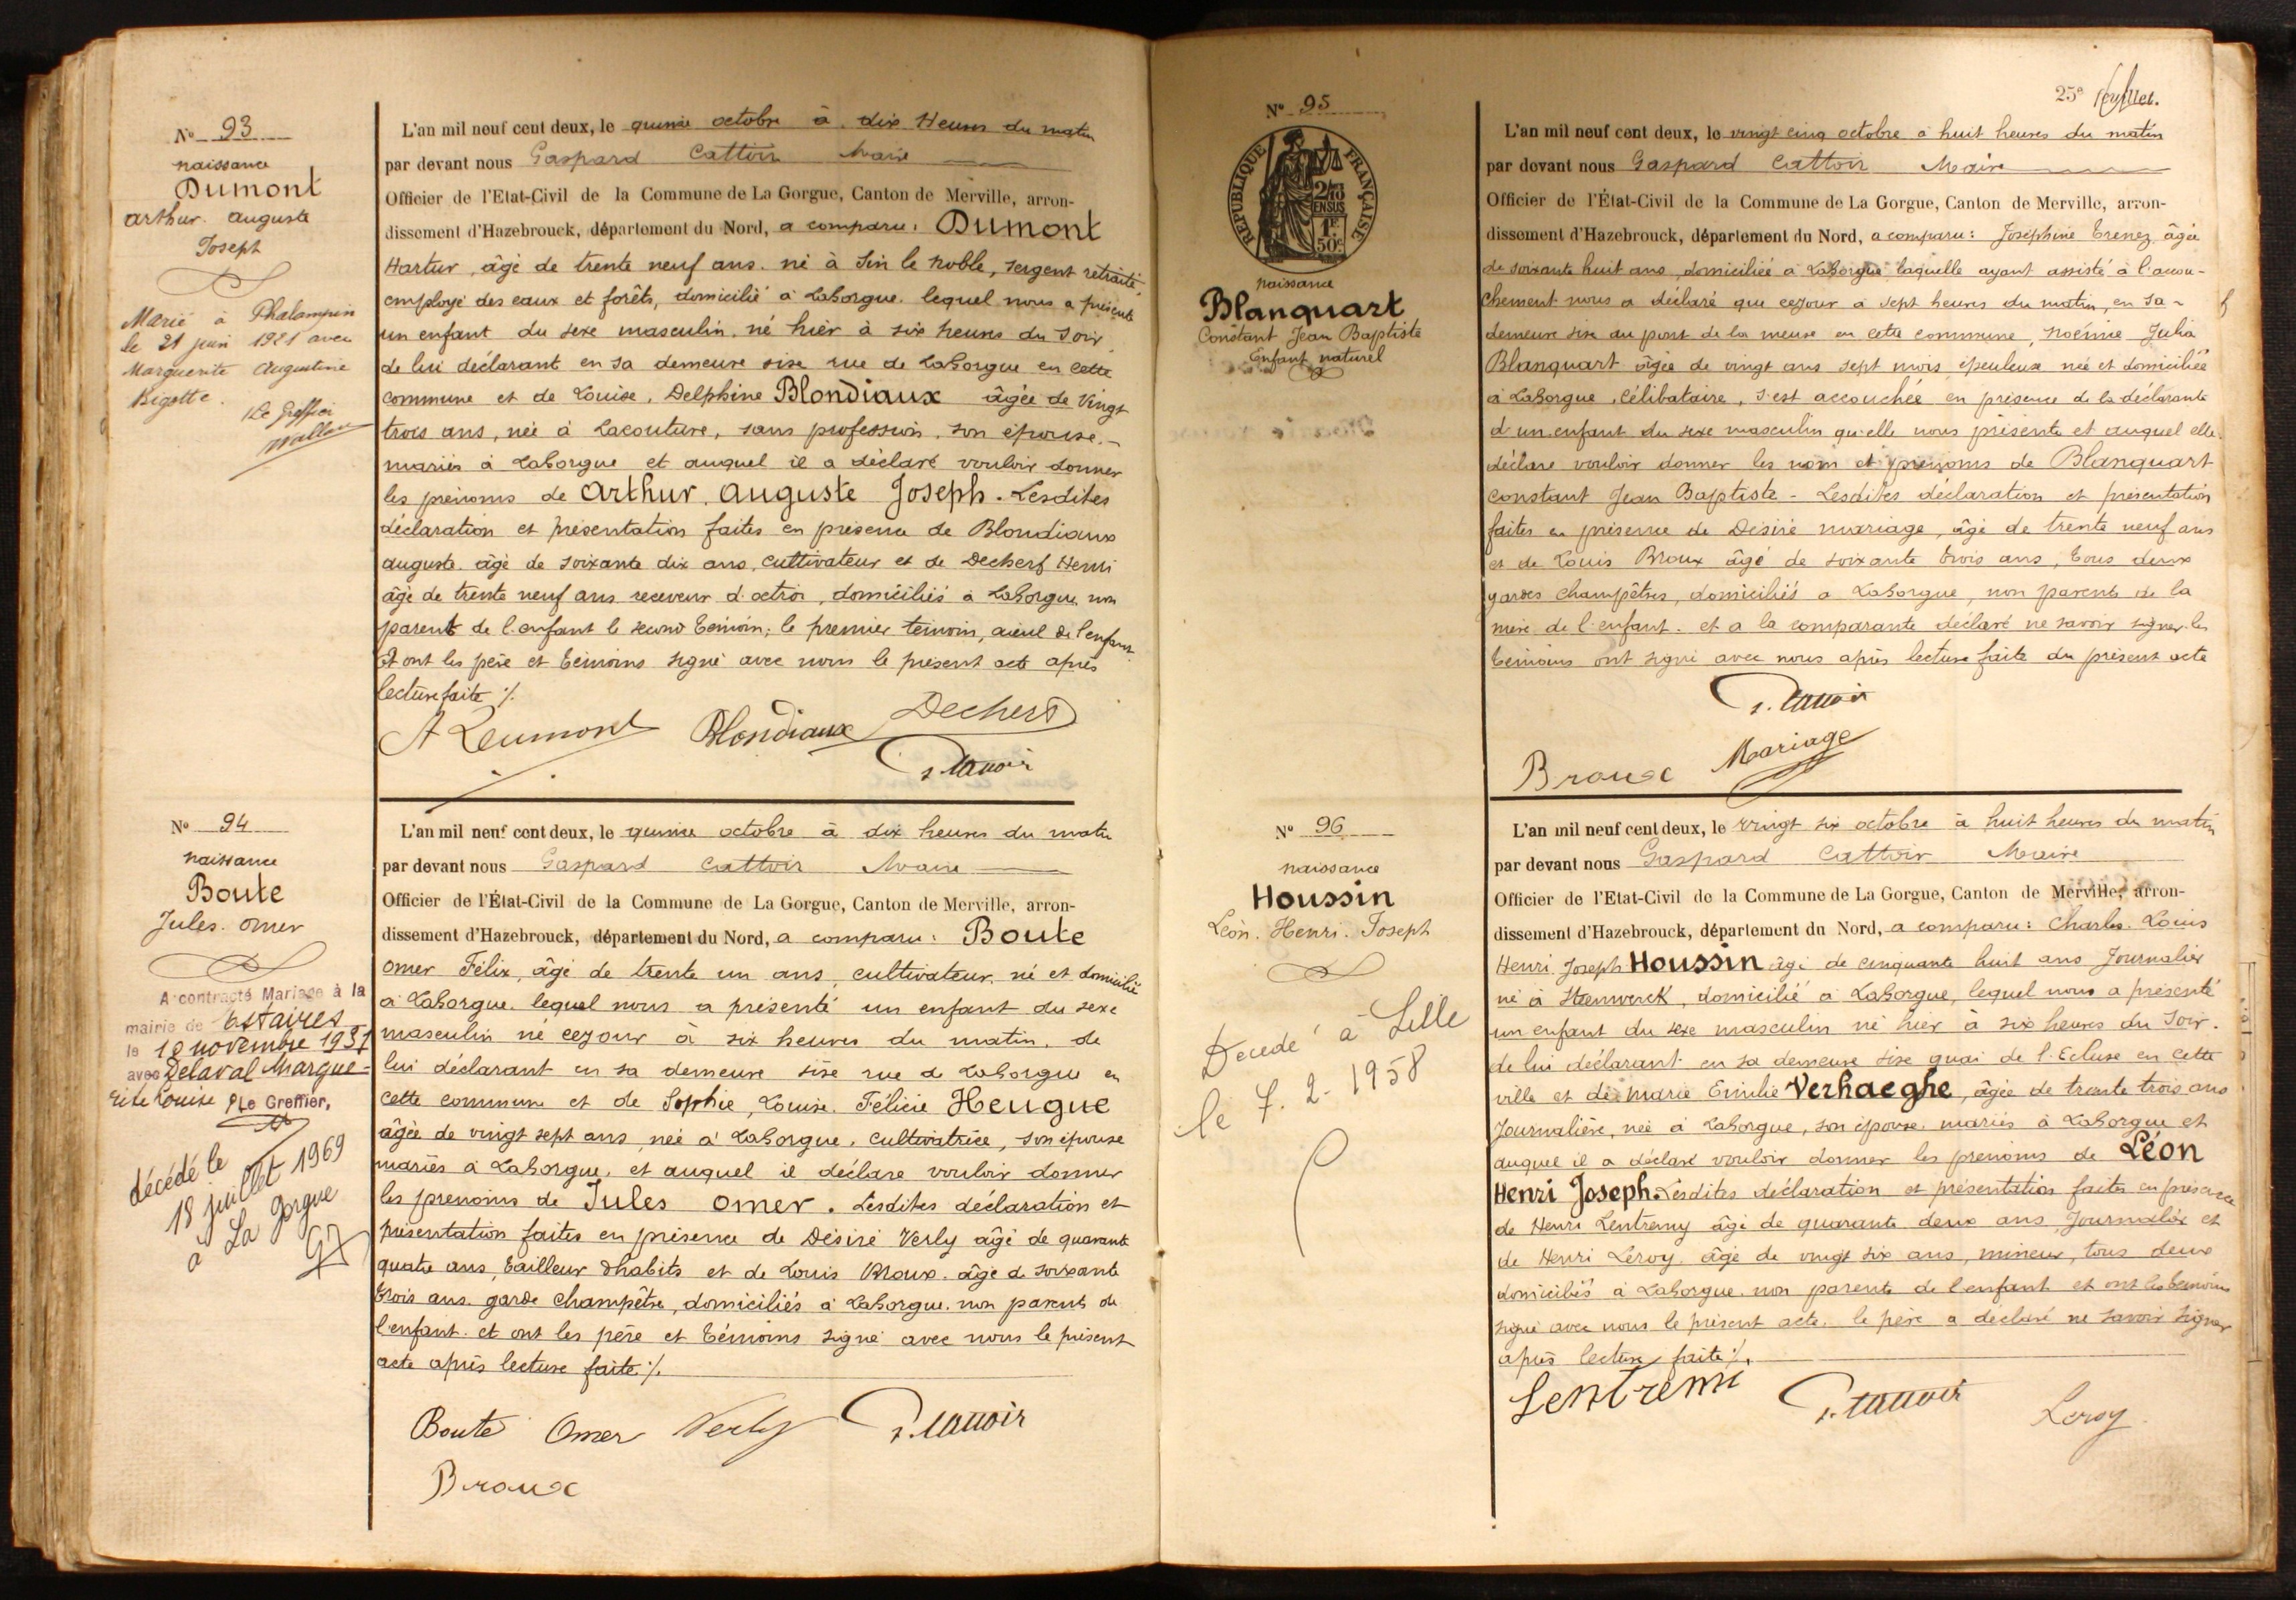 N° 93
naissance
Dumont
Arthur. Auguste
Joseph
Marié à Phalempin
le 21 juin 1921 avec
Marguerite Augustine
Rigotte.
Le Greffier
L'an mil neuf cent deux, le quinze octobre à dix Heures du matin
par devant nous Gaspard Cattoir Maire
Officier de l'Etat-Civil de la Commune de La Gorgue, Canton de Merville, arron-
dissement d'Hazebrouck, département du Nord, a comparu: Dumont
Hartur, âgé de trente neuf ans. né à Sin le noble, sergent retraité
employé des eaux et forêts, domicilié à LaGorgue. lequel nous a présenté
un enfant du sexe masculin. né hier à six heures du soir
de lui déclarant en sa demeure sise rue de LaGorgue en cette
commune et de Louise, Delphine Blondiaux âgée de vingt
trois ans, née à Lacouture, sans profession, son épouse.
mariés à LaGorgue et auquel il a déclaré vouloir donner
les prénoms de Arthur, Auguste Joseph. Lesdites
déclaration et présentation faites en présence de Blondiaux
Auguste âgé de soixante dix ans, cultivateur et de Decherf Henri
âgé de trente neuf ans receveur d'octroi, domiciliés à LaGorgue, non
parent de l'enfant le second témoin; le premier témoin, aïeul de l'enfant.
Et ont les père et témoins signé avec nous le présent acte après
lecture faite ./.
A Deumont Blondiaux Decherf
G. Cattoir
N° 94
naissance
Boute
Jules. Omer
A contracté Mariage à la
mairie de Estaires
le 10 novembre 1931
avec Delaval Margue-
rite Louise P Le Greffier,
décédé le
18 juillet 1969
à La Gorgue
L'an mil neuf cent deux, le quinze octobre à dix heures du matin
par devant nous Gaspard Cattoir Maire
Officier de l'État-Civil de la Commune de La Gorgue, Canton de Merville, arron-
dissement d'Hazebrouck, département du Nord, a comparu: Boute
Omer Félix, âgé de trente un ans, cultivateur, né et domicilié
à LaGorgue. lequel nous a présenté un enfant du sexe
masculin né cejour à six heures du matin, de
lui déclarant en sa demeure sise rue de LaGorgue en
cette commune et de Sophie, Louise. Félicie Heugue
âgée de vingt sept ans, née à LaGorgue, cultivatrice, son épouse
mariés à LaGorgue, et auquel il déclare vouloir donner
les prénoms de Jules Omer. Lesdites déclaration et
présentation faites en présence de Désiré Verly âgé de quarante
quatre ans, tailleur d'habits et de Louis Broux. âgé de soixante
trois ans. garde champêtre, domiciliés à LaGorgue. non parents de
l'enfant. et ont les père et témoins signé avec nous le présent
acte après lecture faite ./.
Boute Omer Verly G. Cattoir
Broux
25e feuillet.
N° 95
RÉPUBLIQUE FRANÇAISE
2/10
EN SUS
1F
50c
naissance
Blanquart
Constant Jean Baptiste
Enfant naturel
L'an mil neuf cent deux, le vingt cinq octobre à huit heures du matin
par devant nous Gaspard Cattoir Maire
Officier de l'État-Civil de la Commune de La Gorgue, Canton de Merville, arron-
dissement d'Hazebrouck, département du Nord, a comparu: Joséphine Trenez âgée
de soixante huit ans, domiciliée à LaGorgue laquelle ayant assisté à l'accou-
chement nous a déclaré que cejour à sept heures du matin, en sa
demeure sise au pont de la meuse en cette commune, Noémie Julia
Blanquart âgée de vingt ans sept mois épeuleuse née et domiciliée
à LaGorgue, célibataire, s'est accouchée en présence de la déclarante
d'un enfant du sexe masculin qu'elle nous présente et auquel elle
déclare vouloir donner les nom et prénoms de Blanquart
Constant Jean Baptiste - Lesdites déclaration et présentation
faites en présence de Désiré Mariage, âgé de trente neuf ans
et de Louis Broux âgé de soixante trois ans, tous deux
gardes champêtres, domiciliés à LaGorgue, non parents de la
mère de l'enfant. et a la comparante déclaré ne savoir signer. les
témoins ont signé avec nous après lecture faite du présent acte
G. Cattoir
Broux Mariage
N° 96
naissance
Houssin
Léon. Henri. Joseph
Décédé à Lille
le 7. 2. 1958
L'an mil neuf cent deux, le vingt six octobre à huit heures du matin
par devant nous Gaspard Cattoir Maire
Officier de l'Etat-Civil de la Commune de La Gorgue, Canton de Merville, arron-
dissement d'Hazebrouck, département du Nord, a comparu: Charles Louis
Henri Joseph Houssin âgé de cinquante huit ans Journalier
né à Steenwerck, domicilié à LaGorgue, lequel nous a présenté
un enfant du sexe masculin né hier à six heures du soir.
de lui déclarant en sa demeure sise quai de l'Ecluse en cette
ville et de Marie Emilie Verhaeghe, âgée de trente trois ans
Journalière, née à LaGorgue, son épouse. mariés à LaGorgue et
auquel il a déclaré vouloir donner les prénoms de Léon
Henri Joseph. Lesdites déclaration et présentation faites en présence
de Henri Lentremy âgé de quarante deux ans, Journalier et
de Henri Leroy. âgé de vingt six ans, mineur, tous deux
domiciliés à LaGorgue. non parents de l'enfant et ont les témoins
signé avec nous le présent acte. le père a déclaré ne savoir signer
après lecture faite ./.
Lentremi G. Cattoir Leroy